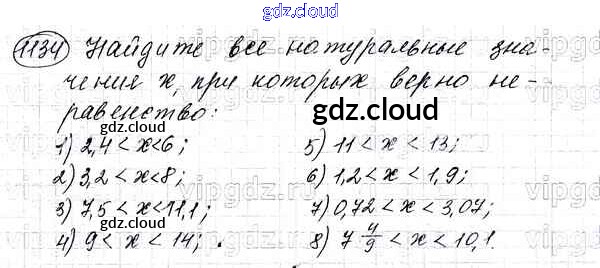 gdz.cloud
1134 Найдите все натуральные зна-
чения x, при которых верно не-
равенство:
gdz.cloud
gdz.cloud
1) 2,4 < x < 6; 5) 11 < x < 13;
2) 3,2 < x < 8; 6) 1,2 < x < 1,9;
3) 7,5 < x < 11,1; 7) 0,72 < x < 3,07;
4) 9 < x < 14; 8) 7 4/9 < x < 10,1.
gdz.cloud
gdz.cloud